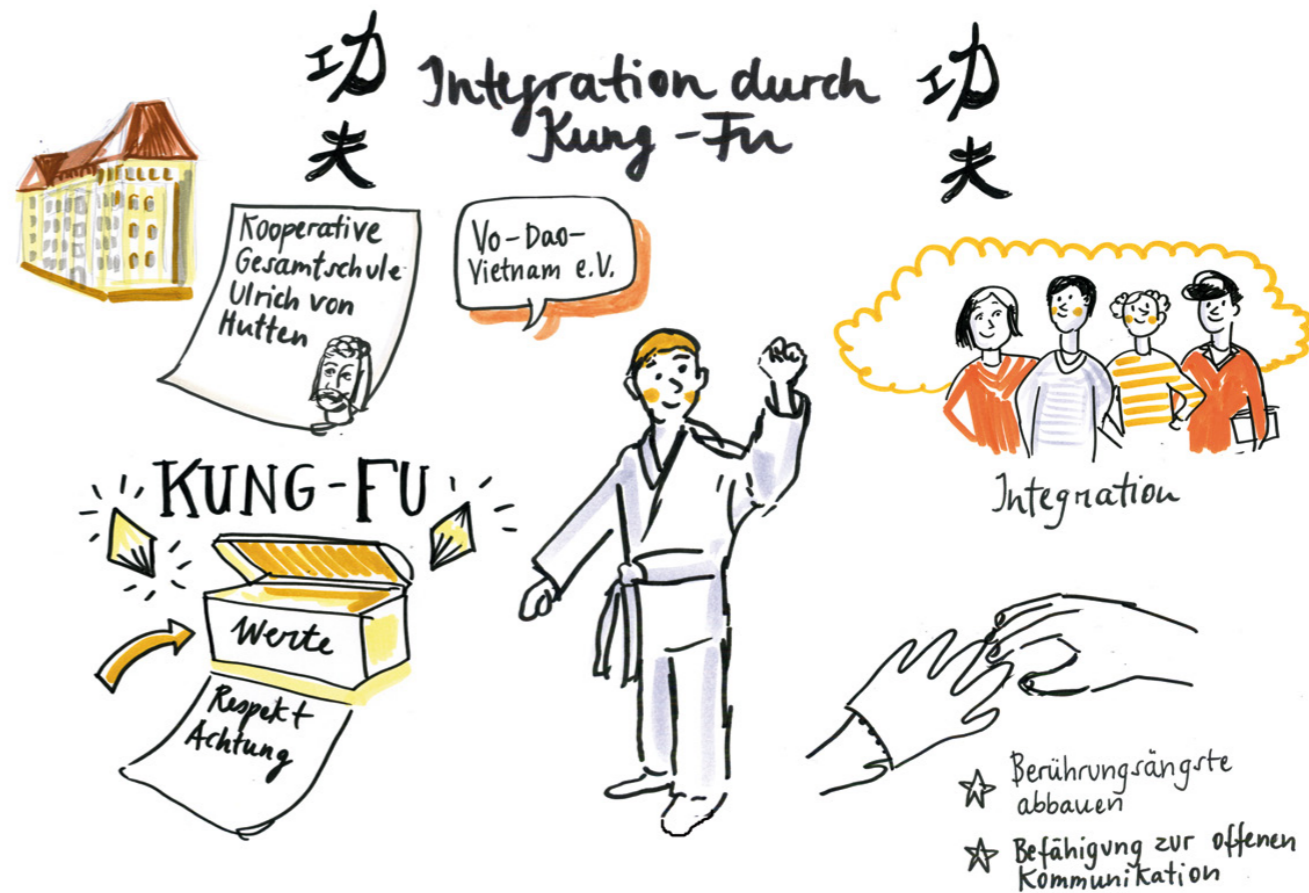 功
夫
Integration durch
Kung-Fu
功
夫
Kooperative
Gesamtschule
Ulrich von
Hutten
Vo-Dao-
Vietnam e.V.
KUNG-FU
Werte
Respekt
Achtung
Integration
Berührungsängste
abbauen
Befähigung zur offenen
Kommunikation